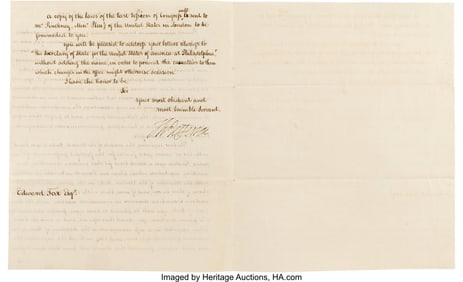 A copy of the laws of the last session of Congress is sent to
Mr Pinckney, Minr Plen: of the United States in London to be
forwarded to you.
You will be pleased to address your letters always to
"the Secretary of State for the United States of America at Philadelphia,"
without adding the name, in order to prevent the to them
which changes in the office might otherwise occasion.
I have the honor to be
Sir
your most obedient and
most humble servant.
Th: Jefferson
Edward Fox Esqr.
Imaged by Heritage Auctions, HA.com